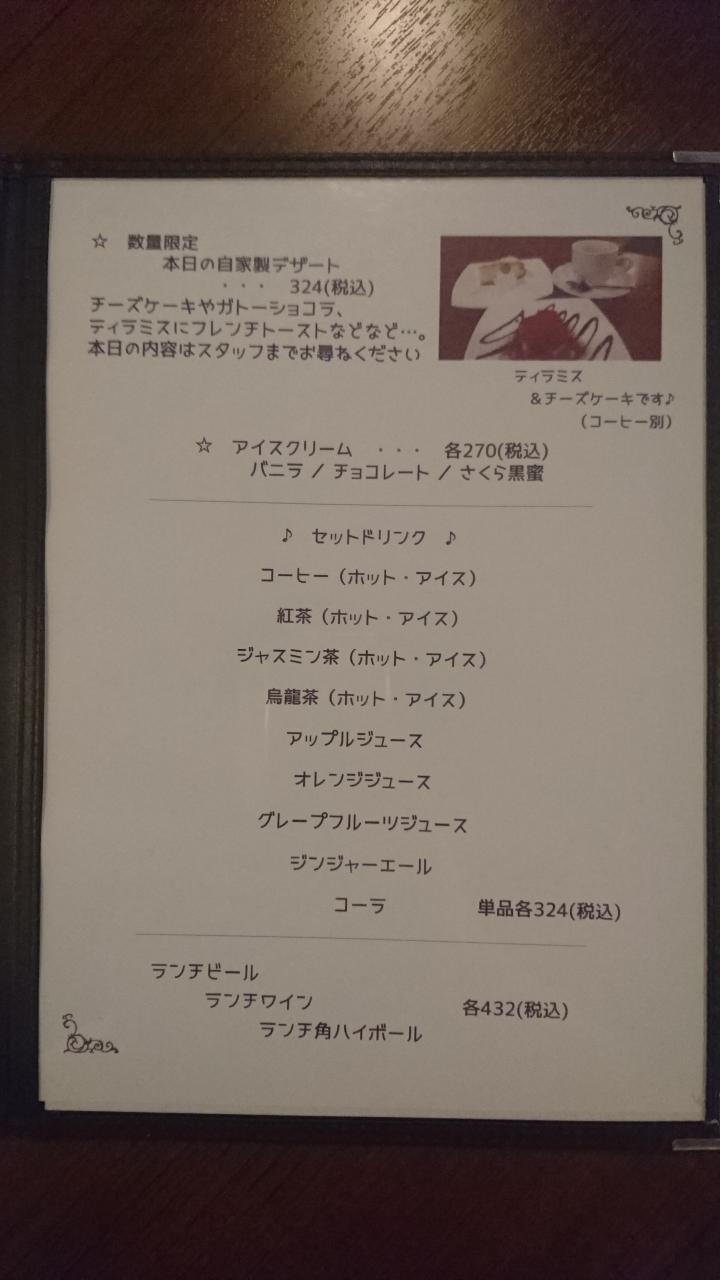 ☆ 数量限定
本日の自家製デザート
・・・ 324(税込)
チーズケーキやガトーショコラ、
ティラミスにフレンチトーストなどなど…。
本日の内容はスタッフまでお尋ねください
ティラミス
&チーズケーキです♪
(コーヒー別)
☆ アイスクリーム ・・・ 各270(税込)
バニラ / チョコレート / さくら黒蜜
♪ セットドリンク ♪
コーヒー(ホット・アイス)
紅茶(ホット・アイス)
ジャスミン茶(ホット・アイス)
烏龍茶(ホット・アイス)
アップルジュース
オレンジジュース
グレープフルーツジュース
ジンジャーエール
コーラ 単品各324(税込)
ランチビール
ランチワイン 各432(税込)
ランチ角ハイボール